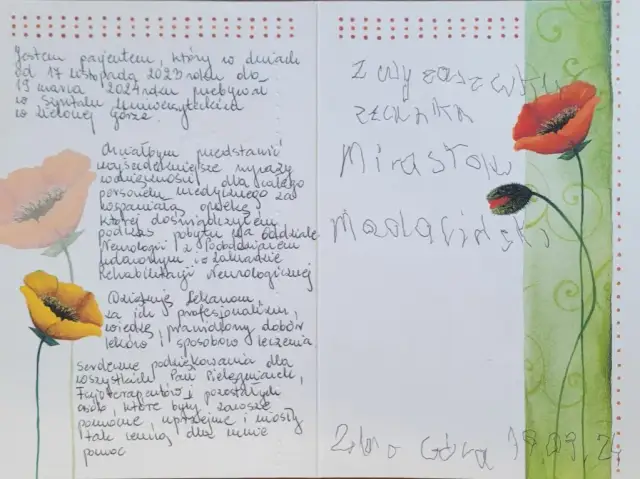 Jestem pacjentem, który w dniach
od 17 listopada 2023 roku do
19 marca 2024 roku przebywał
w szpitalu uniwersyteckim
w Zielonej Górze.
Chciałbym przedstawić
najserdeczniejsze wyrazy
wdzięczności dla całego
personelu medycznego za
wspaniałą opiekę,
której doświadczyłem
podczas pobytu na oddziale
Neurologii z Pododdziałem
udarowym i o zakładzie
Rehabilitacji Neurologicznej
Dziękuję Lekarzom,
za ich profesjonalizm,
wiedzę, prawidłowy dobór
leków i sposobów leczenia
serdeczne podziękowania dla
wszystkich Pań Pielęgniarek,
Fizjoterapeutów i pozostałych
osób, które były zawsze
pomocne uprzejme i niosły
tak cenną dla mnie
pomoc
z wyrazami
Mirosław
19.03.24